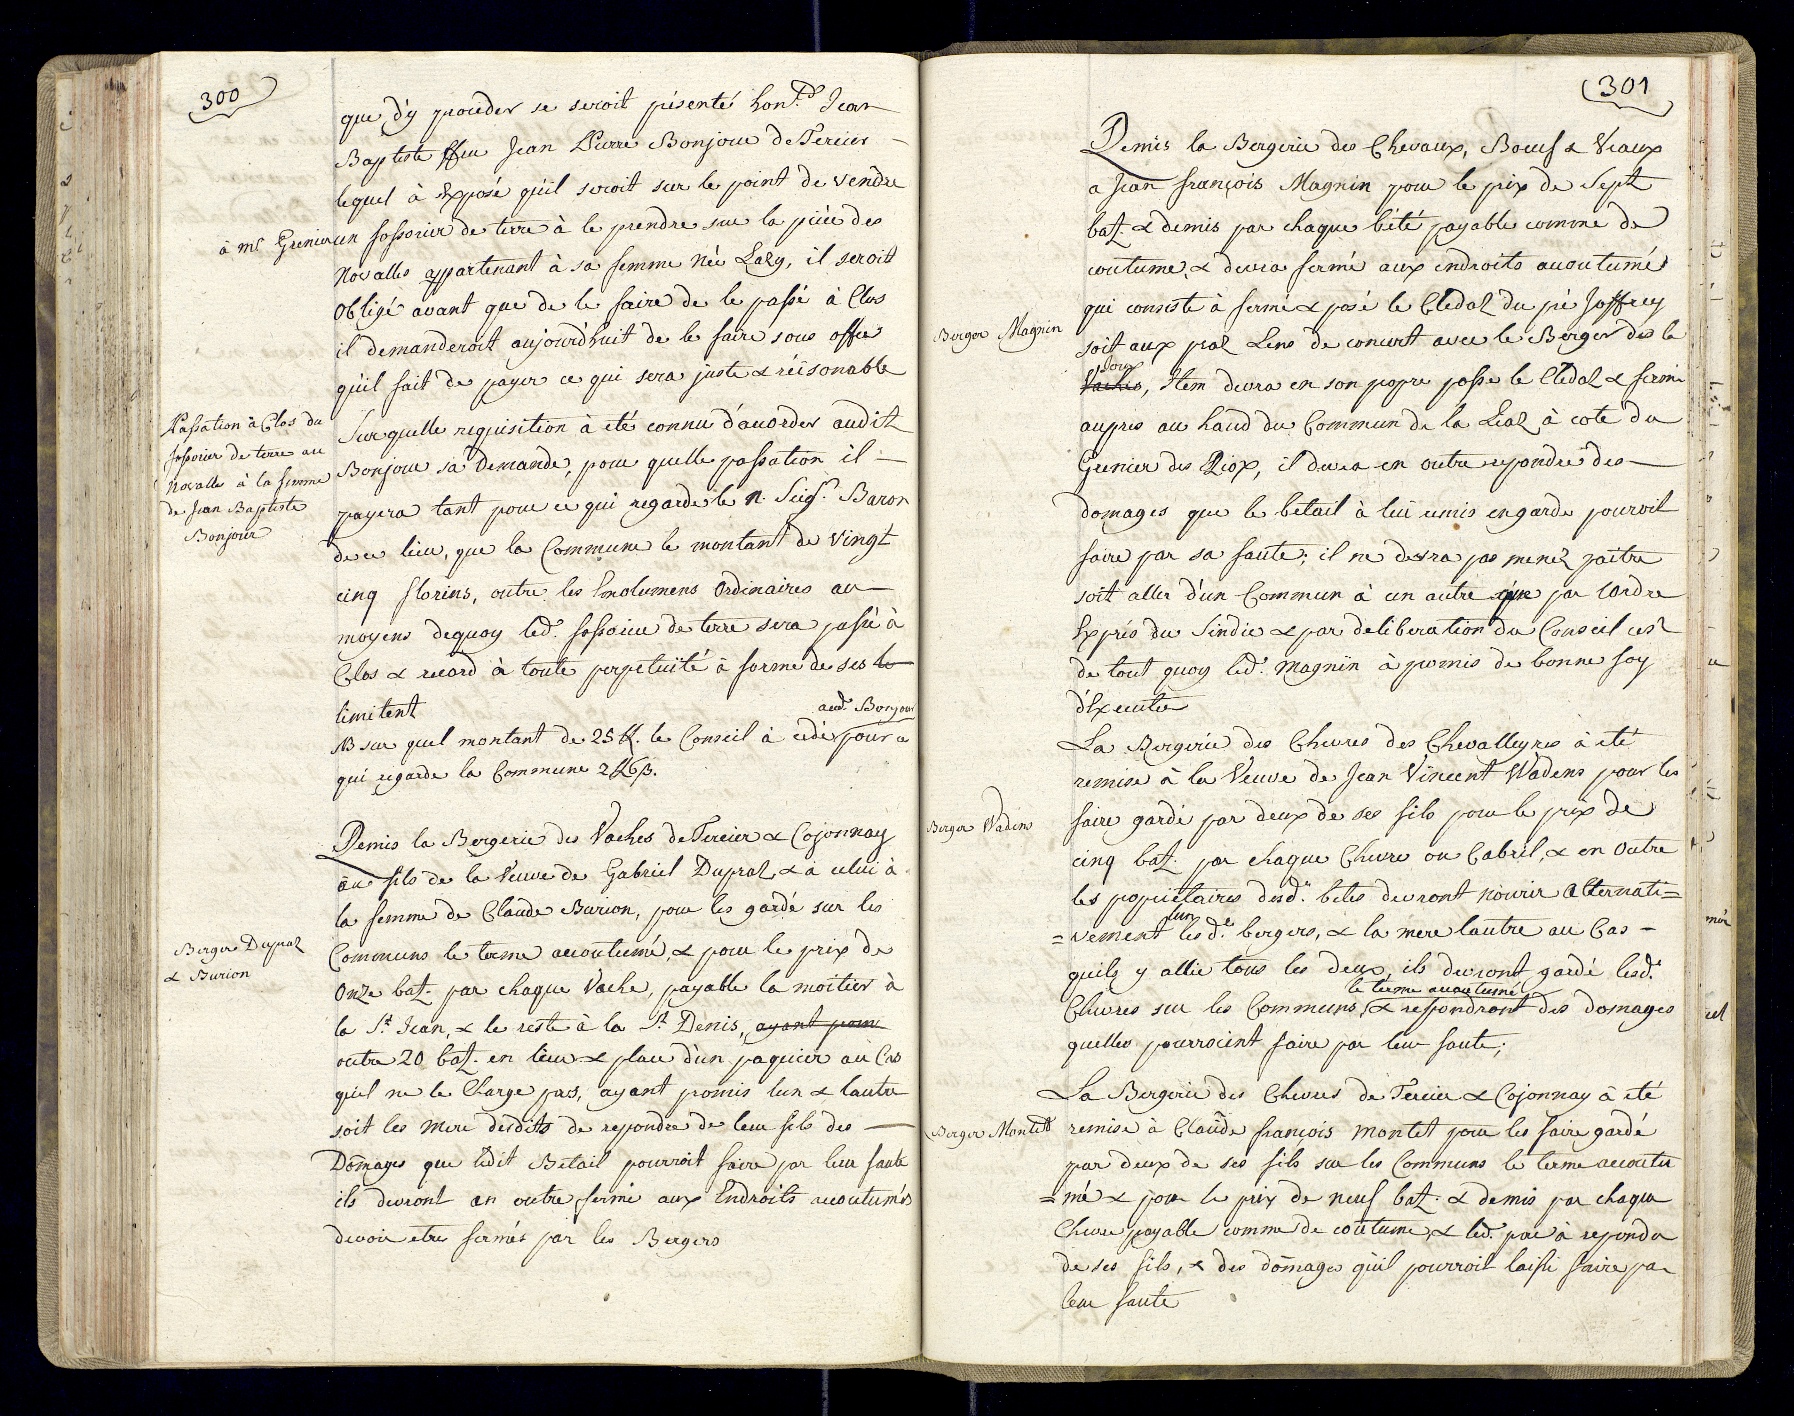 300
que d'y proceder se seroit présenté hon.ble Jean
Baptiste ffeu Jean Pierre Bonjour de Tercier
lequel à Exposé qu'il seroit sur le point de vendre
à mr. Grenier un fossorier de terre à le prendre sur la pièce des
Novalles appartenant à sa femme Née Lazy, il seroit
Obligé avant que de le faire de le passé à Clos
il demanderoit aujourd'huit de le faire sous offre
qu'il fait de payer ce qui sera juste & réisonable
Passation à Clos du
fossorier de terre au
Novalle à la femme
de Jean Baptiste
Bonjour
Sur quelle requisition à été connu d'acorder audit
Bonjour sa demande, pour quelle passation il
payera tant pour ce qui regarde le n. Seigr. Baron
de ce lieu, que la Commune le montant de Vingt
cinq florins, outre les Emolumens Ordinaires au
moyens dequoy led. fossorier de terre sera passé à
Clos & record à toute perpetuité à forme de ses le
limitent
aud. Bonjour
NB sur quel montant de 25 fl. le Conseil à cedé pour ce
qui regarde la Commune 2 fl 6 ß.
Remis la Bergerie des Vaches de Tercier & Cojonnay
au fils de la Veuve de Gabriel Dupraz & à celui à
la femme de Claude Burion, pour les gardé sur les
Berger Dupraz
& Burion
Communs le terme accoutumé, & pour le prix de
Onze batz. par chaque Vache, payable la moitier à
la St. Jean, & le reste à la St. Denis, ayant prom
outre 20 batz. en lieu & place d'un paquier au Cas
qu'il ne le Charge pas, ayant promis lun & lautre
soit les mere desdits de repondre de leur fils des
Dõmages que ledit Bétail pourroit faire par leur faute
ils devront en outre fermé aux Endroits accoutumés
devoir etre fermés par les Bergers
301
Remis la Bergerie des Chevaux, Boeuf & Veaux
a Jean françois Magnin pour le prix de Sept
batz. & demis par chaque bété payable comme de
coutume, & devra fermé aux endroits acoutumés
qui consiste à fermé & posé le Cledaz du pré Joffrey
Berger Magnin
soit aux praz Lins de concert avec le Berger des la
Vaches, Item devra en son propre posse le Cledaz & fermé
aupres au haud du Commun de la Liaz à coté du
Grenier des Riox, il devra en outre repondre des
domages que le betail à lui remis en garde pourroit
faire par sa faute; il ne devra pas menez paitre
soit aller d'un Commun à un autre que par lOrdre
Exprès du Sindic & par deliberation du Conseil
de tout quoy led. Magnin à promis de bonne foy
d'Executer
La Bergerie des Chevres des Chevalleyres à eté
remise à la Veuve de Jean Vincent Wadens pour les
Berger Wadens
faire gardé par deux de ses fils pour le prix de
cinq batz. par chaque Chevre ou Cabril, & en Outre
les propriétaires desd. betes devront nourir Alternati=
lun
=vement lesd. bergers, & la mere lautre au Cas
quils y allie tous les deux, ils devront gardé lesd.
le terme accoutumé
Chevres sur les Communs, & respondront des domages
quelles pourroient faire par leur faute;
La Bergerie des Chevres de Tercier & Cojonnay à eté
Berger Montet
remise à Claude françois Montet pour les faire gardé
par deux de ses fils sur les Communs le terme accoutu
=mé & pour le prix de neuf batz. & demis par chaque
Chevre payable comme de coutume, & led. pere à repondu
de ses fils, & des dõmages qu'il pourroit laissé faire par
leur faute